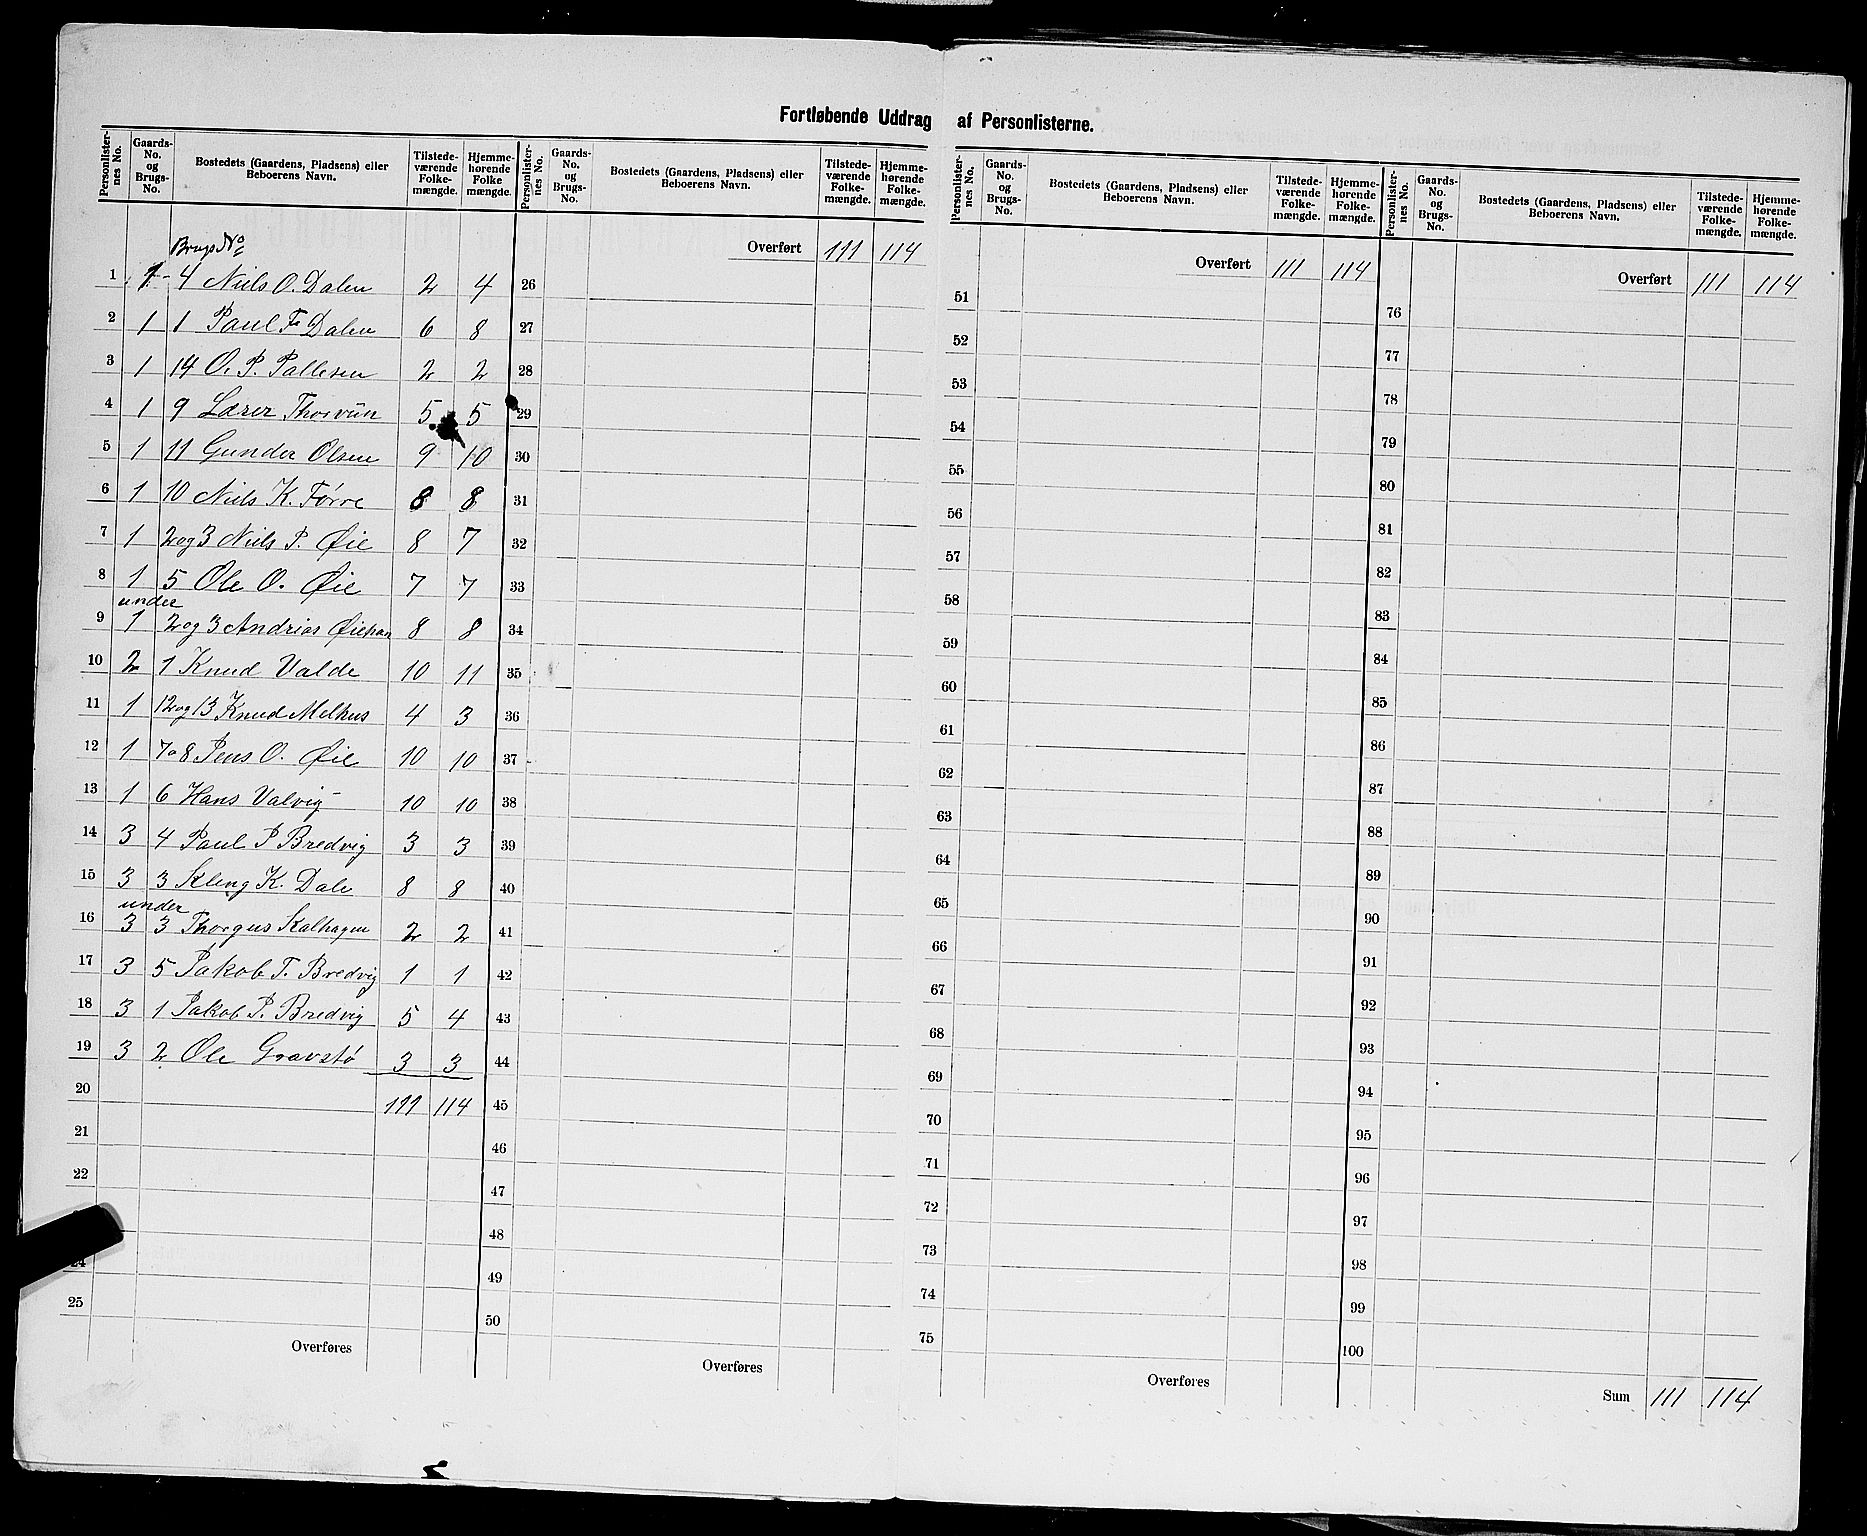 Fortløbende Uddrag af Personlisterne.
Personlister-nes No. Gaards-No. og Brugs-No. Bostedets (Gaardens, Pladsens) eller Beboerens Navn. Tilstede-værende Folke-mængde. Hjemme-hørende Folke mængde.
Personlister-nes No. Gaards-No. og Brugs-No. Bostedets (Gaardens, Pladsens) eller Beboerens Navn. Tilstede-værende Folke-mængde. Hjemme-hørende Folke-mængde.
Personlister-nes No. Gaards-No. og Brugs-No. Bostedets (Gaardens, Pladsens) eller Beboerens Navn. Tilstede-værende Folke-mængde. Hjemme-hørende Folke-mængde.
Personlister-nes No. Gaards-No. og Brugs-No. Bostedets (Gaardens, Pladsens) eller Beboerens Navn. Tilstede-værende Folke-mængde. Hjemme-hørende Folke-mængde.
Brugs No
1 1 - 4 Niels O. Dalen 2 4
2 1 1 Paul F Dalen 6 8
3 1 14 O. P. Pallesen 2 2
4 1 9 Lærer Thorvün 5 5
5 1 11 Gunder Olsen 9 10
6 1 10 Niels K. Førre 8 8
7 1 2 og 3 Niels P. Øie 8 7
8 1 5 Ole O. Øie 7 7
under
9 1 2 og 3 Andrias 8 8
10 2 1 Knud Valde 10 11
11 1 12 og 13 Knud Melhus 4 3
12 1 7 o 8 Jens O. Øie 10 10
13 1 6 Hans Valvig 10 10
14 3 4 Paul P Bredvig 3 3
15 3 3 Kleng K. Dale 8 8
under
16 3 3 Thorgus Kalhagen 2 2
17 3 5 Jakob T. Bredvig 1 1
18 3 1 Jakob P. Bredvig 5 4
19 3 2 Ole Gravstø 3 3
20 111 114
21
22
24
25
Overføres
Overført 111 114
26
27
28
29
30
31
32
33
34
35
36
37
38
39
40
41
42
43
44
45
46
47
48
49
50
Overføres
Overført 111 114
51
52
53
54
55
56
57
58
59
60
61
62
63
64
65
66
67
68
69
70
71
72
73
74
75
Overføres
Overført 111 114
76
77
78
79
80
81
82
83
84
85
86
87
88
89
90
91
92
93
94
95
96
97
98
99
100
Sum 111 114